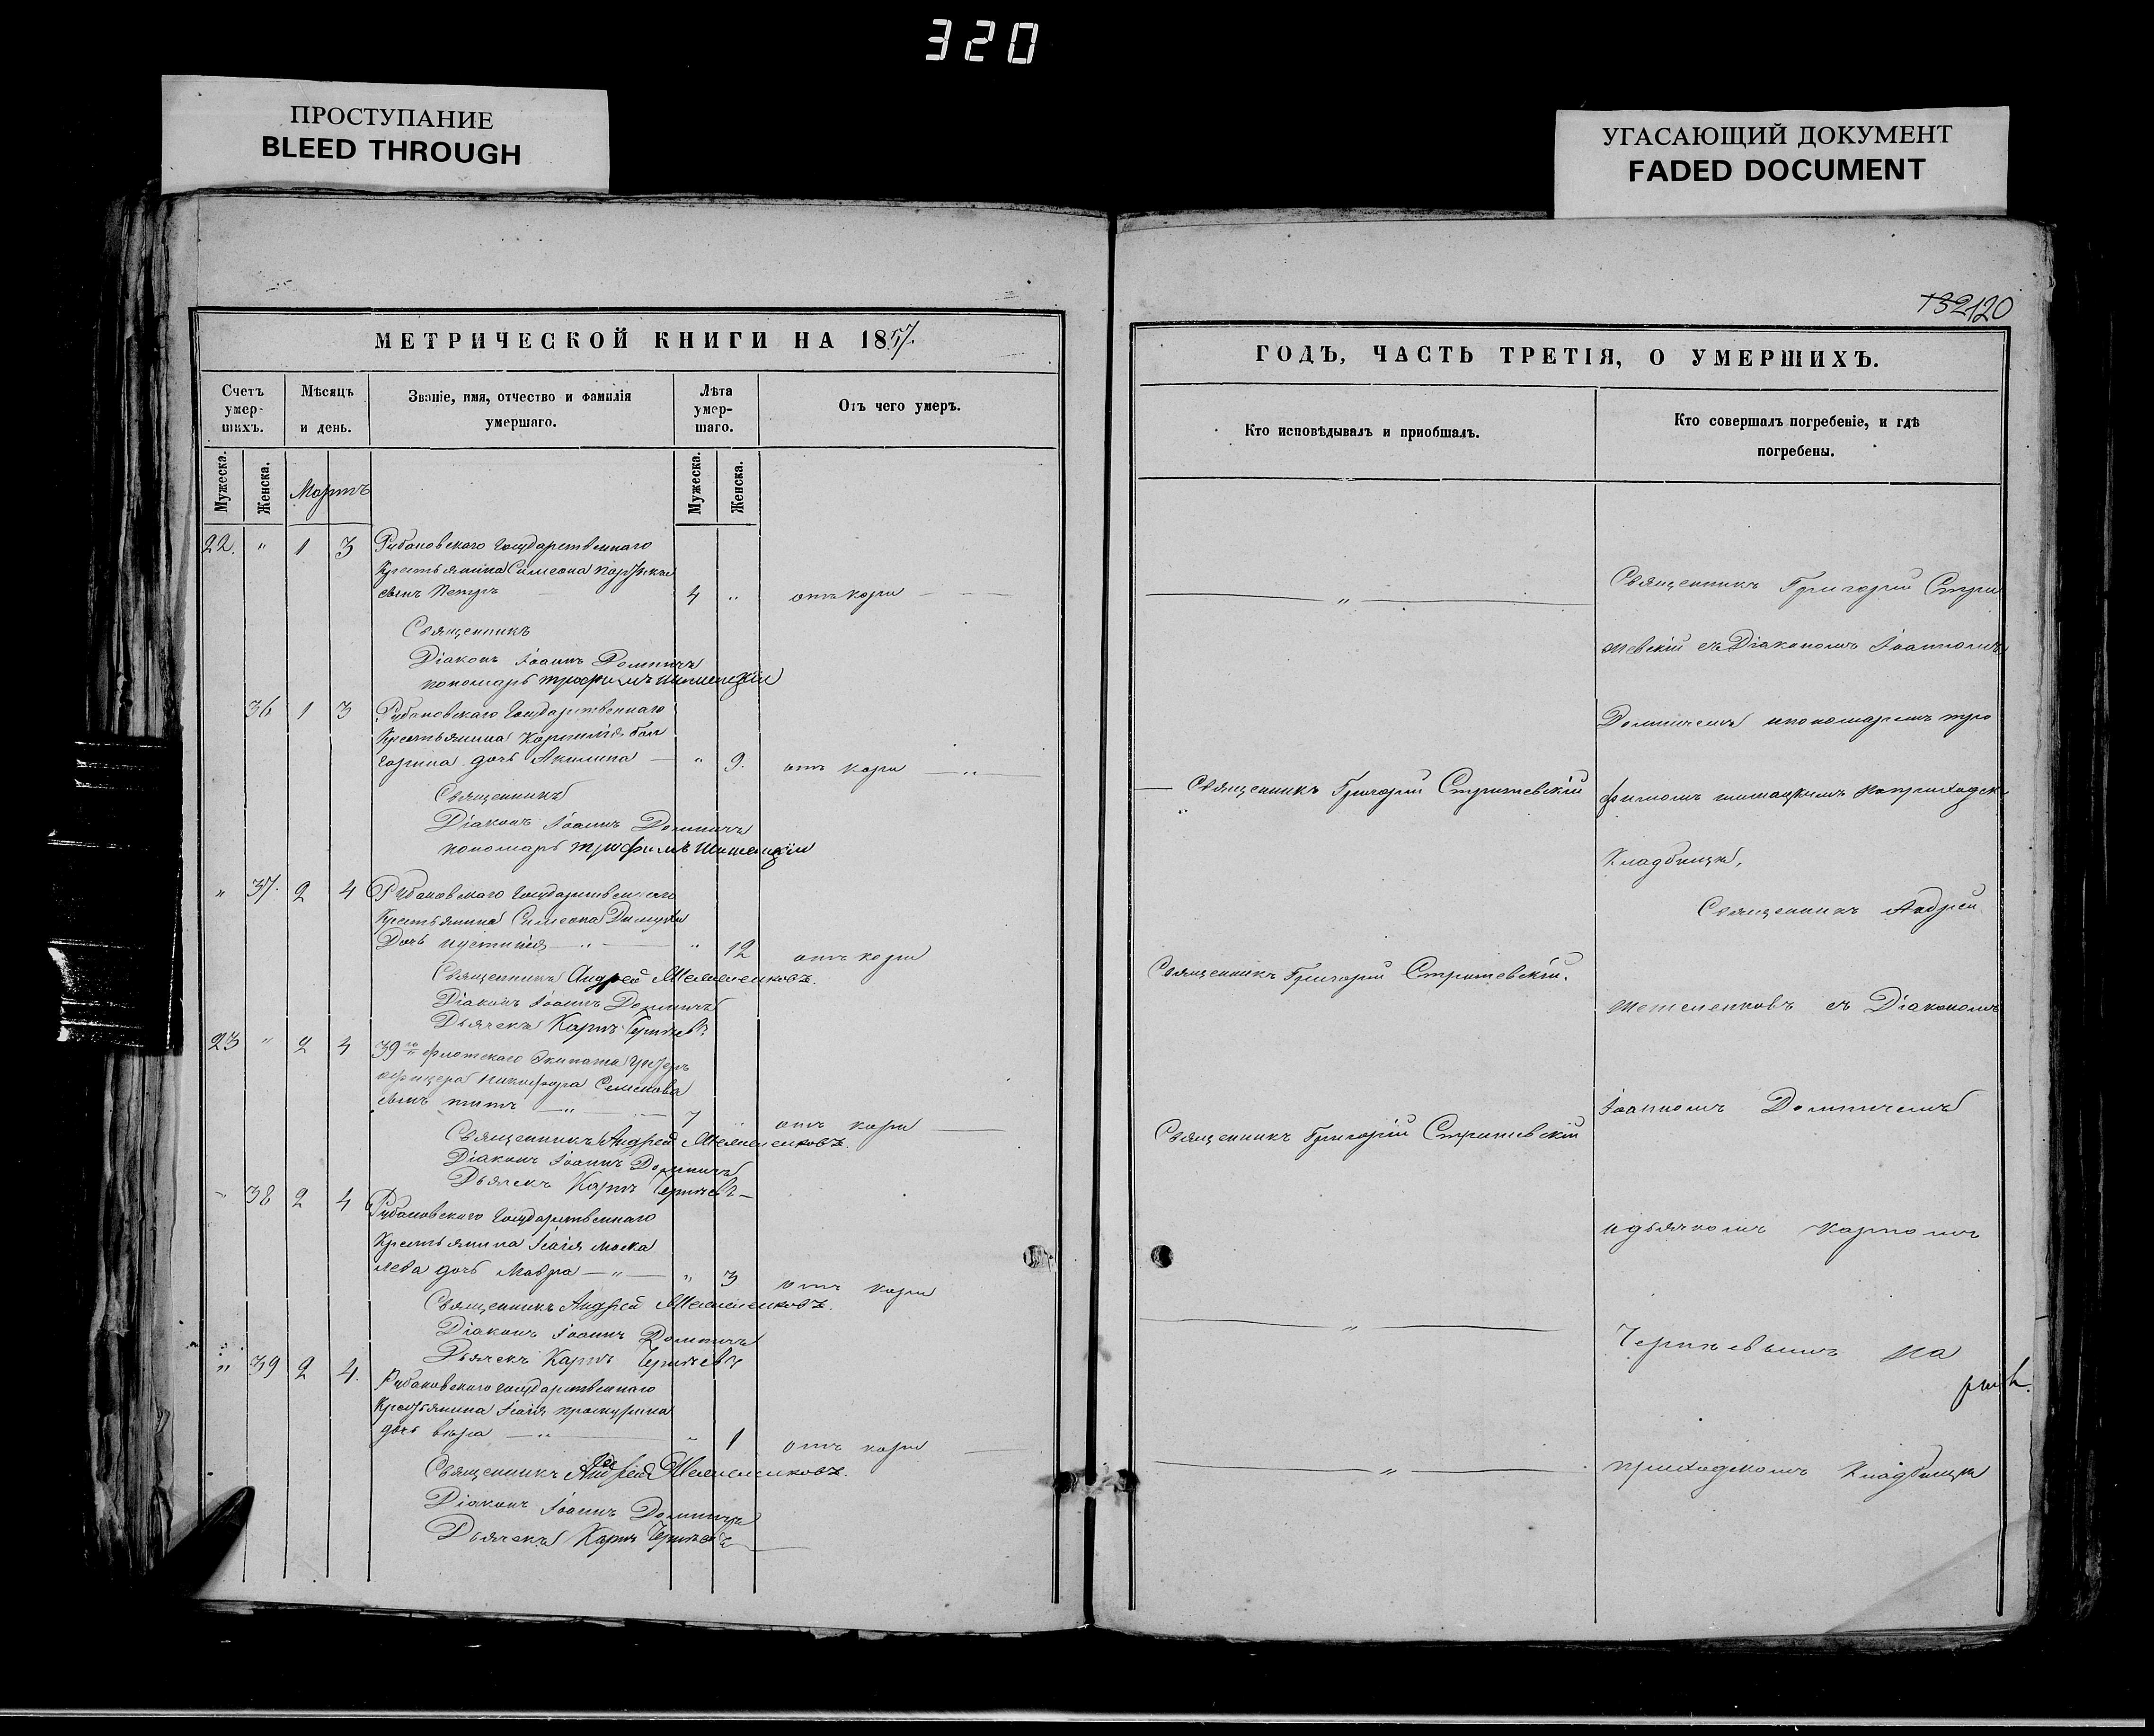 320
ПРОСТУПАНИЕ
BLEED THROUGH
УГАСАЮЩИЙ ДОКУМЕНТ
FADED DOCUMENT
МЕТРИЧЕСКОЙ КНИГИ НА 1857.
Счетъ умер-шихъ.
Мѣсяцъ и день.
Званіе, имя, отчество и фамилія умершаго.
Лѣта умер-шаго.
Отъ чего умеръ.
Мужеска.
Женска.
Мартъ
Мужеска.
Женска.
22. " 1 3 Рубановскаго Государственнаго
Крестьянина Симеона
сынъ Петръ 4 " отъ кори
Священникъ
Діаконъ Іоаннъ Доминичъ
пономарь Трофимъ
36 1 3 Рубановскаго Государственнаго
Крестьянина Корнилія
дочь Акилина " 9. отъ кори "
Священникъ
Діаконъ Іоаннъ Доминичъ
пономарь Трофимъ
" 37. 2 4 Рубановскаго Государственнаго
Крестьянина Симеона
Дочь Іустинія " " 12 отъ кори
Священникъ Андрей
Діаконъ Іоаннъ Доминичъ
Дьячекъ Карпъ
23 " 2 4 39го флотскаго Экипажа Унтеръ
офицера Никифора Семенова
сынъ Титъ " 7 " отъ кори
Священникъ Андрей
Діаконъ Іоаннъ Доминичъ
Дьячекъ Карпъ
" 38 2 4 Рубановскаго Государственнаго
Крестьянина Ісаія Моска
лева дочь Мавра " " 3 отъ кори
Священникъ Андрей
Діаконъ Іоаннъ Доминичъ
Дьячекъ Карпъ
" 39 2 4. Рубановскаго Государственнаго
Крестьянина Ісаія
дочь " " 1 отъ кори
Священникъ Андрей
Діаконъ Іоаннъ Доминичъ
Дьячекъ Карпъ
132 120
ГОДЪ, ЧАСТЬ ТРЕТІЯ, О УМЕРШИХЪ.
Кто исповѣдывалъ и приобщалъ.
Кто совершалъ погребеніе, и гдѣ погребены.
"
Священникъ Григорій Стрижевскій
"
Священникъ Григорій Стрижевскій.
Священникъ Григорій Стрижевскій
"
"
Священникъ Григорій Стри
жевскій съ Діакономъ Іоанномъ
Доминичемъ и пономаремъ Тро
фимомъ на приходск
Кладбищѣ,
Священникъ Андрей
съ Діакономъ
Іоанномъ Доминичемъ
и дьячкомъ Карпомъ
на
приходскомъ Кладбищѣ